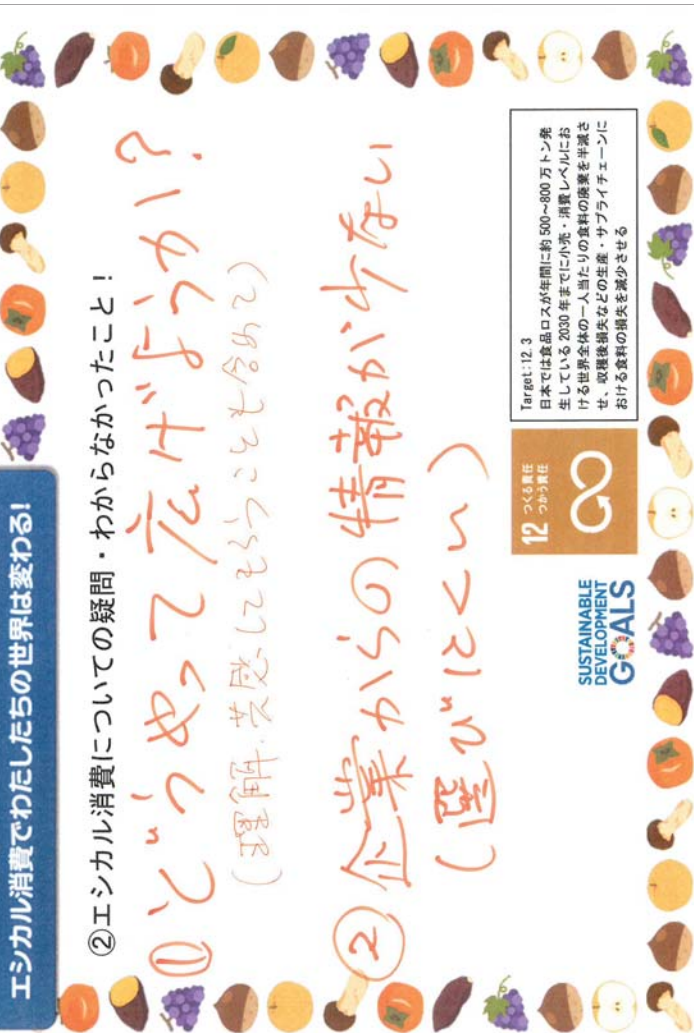 エシカル消費でわたしたちの世界は変わる!
②エシカル消費についての疑問・わからなかったこと!
①どうやって広げようか?
(理解、共感してもらうことも含めて)
②企業からの情報が少ない
(選びにくい)
SUSTAINABLE
DEVELOPMENT
GOALS
12 つくる責任
つかう責任
Target:12.3
日本では食品ロスが年間に約500~800万トン発
生している2030年までに小売・消費レベルにお
ける世界全体の一人当たりの食料の廃棄を半減さ
せ、収穫後損失などの生産・サプライチェーンに
おける食料の損失を減少させる